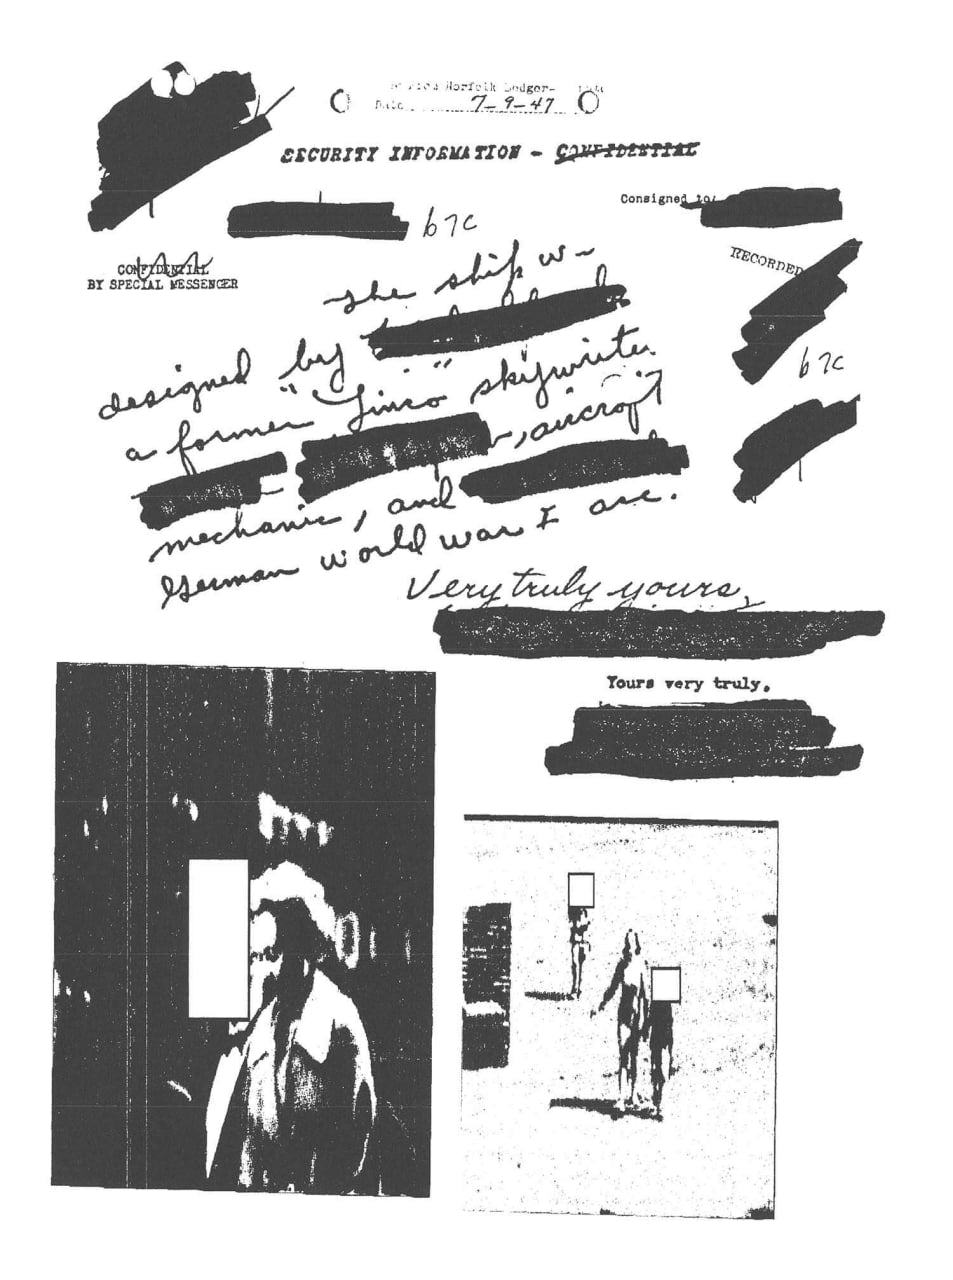 Norfolk Ledger-
Date 7-9-47
SECURITY INFORMATION - CONFIDENTIAL
Consigned to:
b7c
CONFIDENTIAL
BY SPECIAL MESSENGER
RECORDED
b7c
The ship w-
designed by
a former "Linco" skywriter
, aircraft
mechanic, and
German world war I ace.
Very truly yours,
Yours very truly,